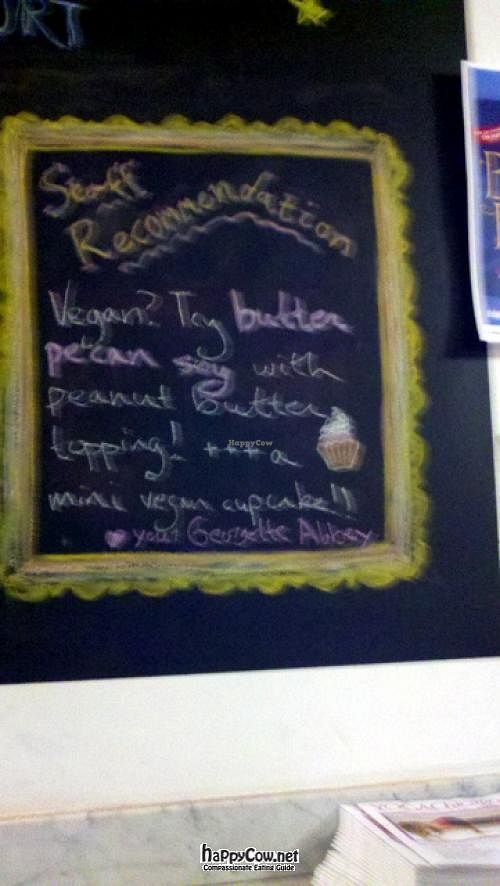 URT
Staff
Recommendation
Vegan? Try butter
pecan soy with
peanut butter
topping! +++ a
mini vegan cupcake!!
♥ your Georgette Abbey
HappyCow
haPPyCow.net
COMPASSIONATE EATING GUIDE